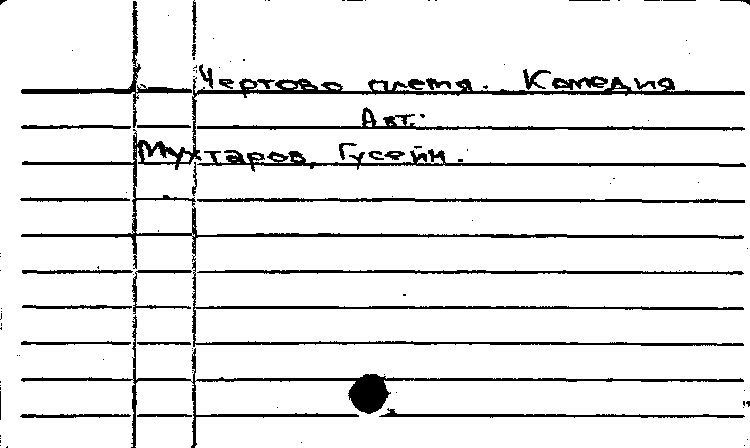 Чертово племя. Комедия
Авт.:
Мухтаров, Гусейн.